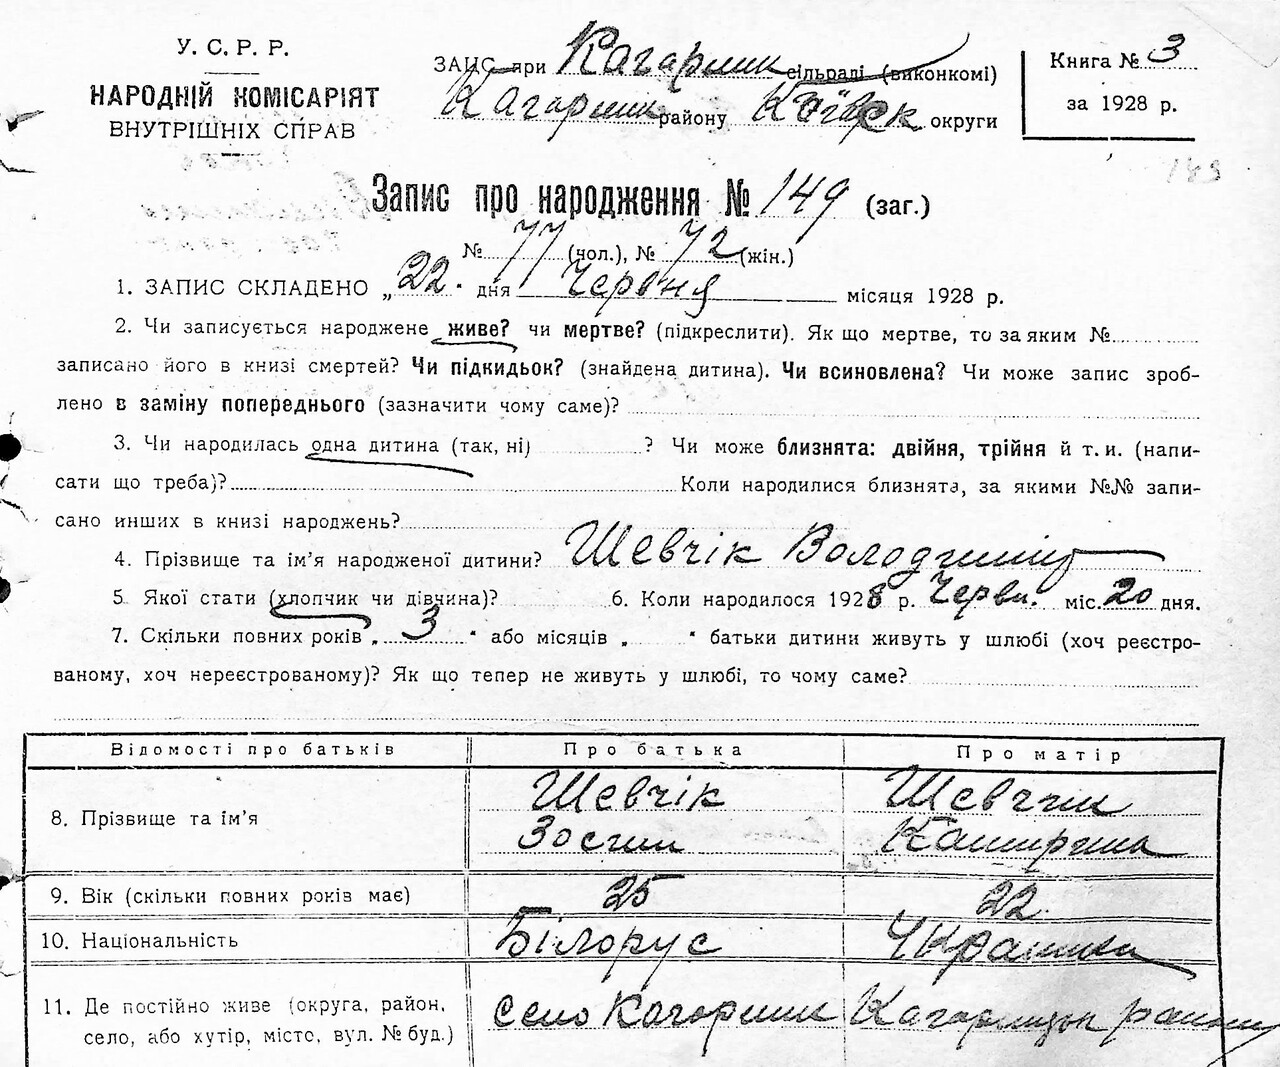 У. С. Р. Р.
НАРОДНІЙ КОМІСАРІЯТ
ВНУТРІШНІХ СПРАВ
ЗАГС при Кагарлик сільраді (виконкомі)
Кагарлик району Київск округи
Книга № 3
за 1928 р.
149
Запис про народження № 149 (заг.)
№ 77 (чол.), № 72 (жін.)
1. ЗАПИС СКЛАДЕНО „22" дня Червня місяця 1928 р.
2. Чи записується народжене живе? чи мертве? (підкреслити). Як що мертве, то за яким №
записано його в книзі смертей? Чи підкидьок? (знайдена дитина). Чи всиновлена? Чи може запис зроб-
лено в заміну попереднього (зазначити чому саме)?
3. Чи народилась одна дитина (так, ні) ? Чи може близнята: двійня, трійня й т. и. (напи-
сати що треба)? Коли народилися близнята, за якими №№ запи-
сано инших в книзі народжень?
4. Прізвище та ім'я народженої дитини? Шевчік Володимир
5 Якої стати (хлопчик чи дівчина)? 6. Коли народилося 1928 р. Червн. міс. 20 дня.
7. Скільки повних років „ 3 " або місяців „ " батьки дитини живуть у шлюбі (хоч реєстро-
ваному, хоч нереєстрованому)? Як що тепер не живуть у шлюбі, то чому саме?
Відомості про батьків Про батька Про матір
8. Прізвище та ім'я Шевчік Шевчик
Зосим Катирина
9. Вік (скільки повних років має) 25 22
10. Національність Білорус Українка
11. Де постійно живе (округа, район, село Кагарлик Кагарлицьк району
село, або хутір, місто, вул. № буд.)